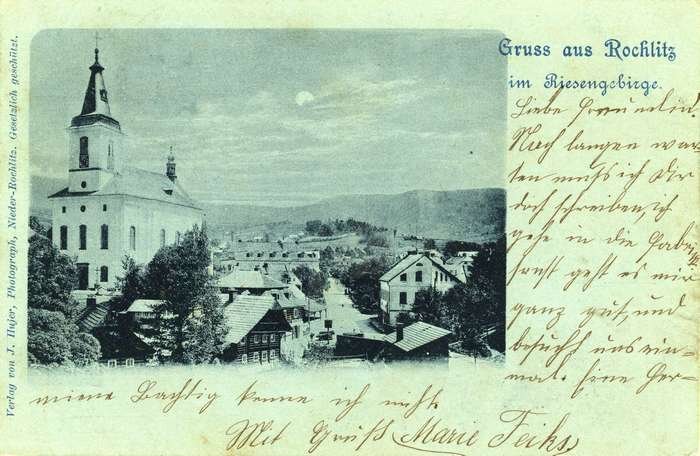 Gruss aus Rochlitz
im Riesengebirge.
Verlag von J. Hujer, Photograph, Nieder-Rochlitz. Gesetzlich geschützt.
Liebe Freundin.
Nach langen war-
ten muß ich Dir
doch schreiben, ich
gehe in die
sonst geht es mir
ganz gut, und
besuch uns ein-
mal. Eine Her-
miene Bachtig kenne ich nicht.
Mit Gruß Marie Feiks